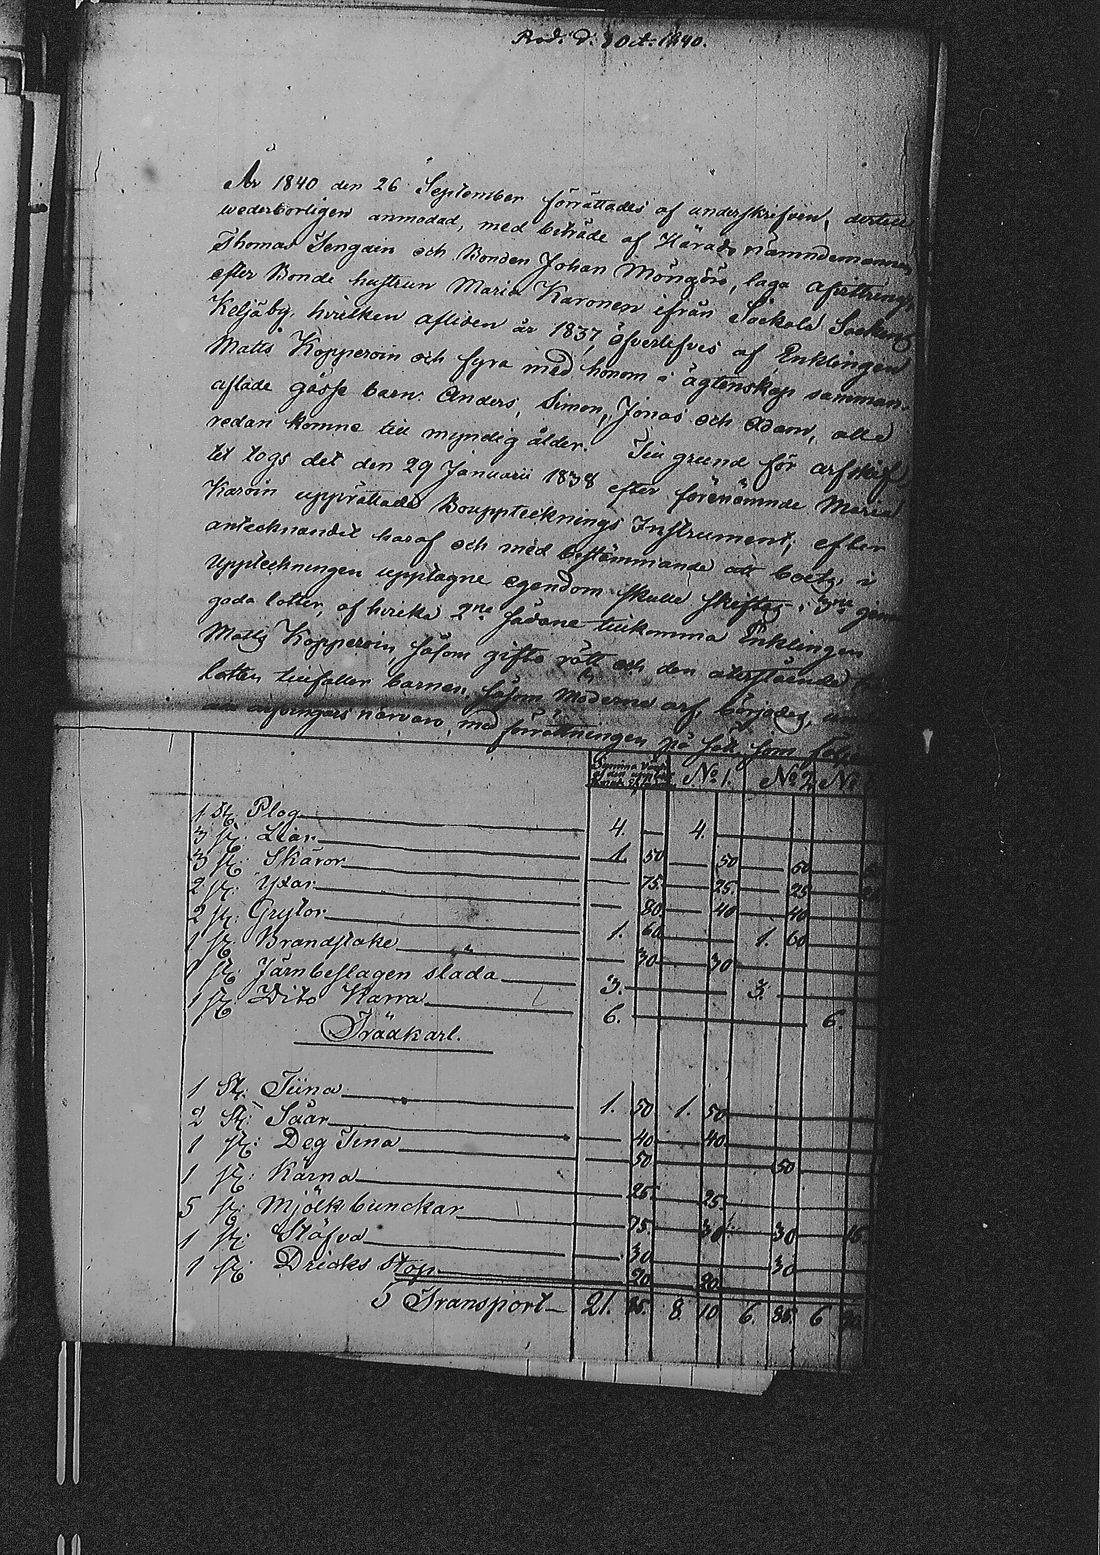 Prod. d. 8 Oct. 1840.
År 1840 den 26 September förrättades af underskrifven, dertill
wederbörligen anmodad, med biträde af Härads Nämndemannen
Thomas Sengäin och Bonden Johan Möngöin, laga afvittring
efter Bonde hustrun Maria Karonen ifrån Säckola Socken
Keljäby, hvilken afliden år 1837, öfverlefves af Enklingen
Matts Kopperoin och fyra med honom i ägtenskap samman-
aflade gosse barn: Anders, Simon, Jonas och Adam, alle
redan komne till myndig ålder. Till grund för arfskif-
tet togs det den 29 Januarii 1838 efter förenämnde Maria
Karoin upprättade Bouppteknings Instrument, efter
antecknandet haraf och med bestämmande att boets i
Upptekningen upptagne egendom skulle skiftas i 3ne
goda lotter, af hvilka 2ne sådane tillkomma Enklingen
Matts Kopperoin, såsom gifto rätt och den återstående
lotten tillfaller barnen, såsom Möderne arf, började,
arfvingars närvaro, med förrättningen på sätt som följer
Summa Värde
No 1. No 2. No
1 St: Plog 4. 4.
3 st: Liar 1. 50 50 50
3 st: Skäror 75. 25. 25
2 st: Yxar 80. 40 40
2 st: Grytor 1. 60 1. 60
1 st: Brandstake 30 30
1 st: Järnbeslagen slada 3. 3.
1 st: Dito Karra 6. 6.
Trädkärl.
1 St: Tiina 1. 50 1. 50
2 St: Såår 40 40
1 st: Deg Tina 50 50
1 st: Kärna 25. 25.
5 st: Mjölk bunckar 75. 30 30 15
1 st: Stäfva 30 30
1 st: Dricks stop 20 20
Transport 21. 85. 8. 10 6. 85. 6